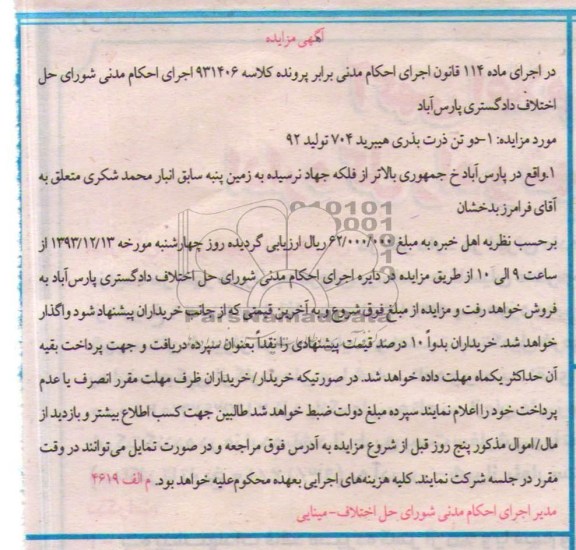 آگهی مزایده
در اجرای ماده ۱۱۴ قانون اجرای احکام مدنی برابر پرونده کلاسه ۹۳۱۴۰۶ اجرای احکام مدنی شورای حل
اختلاف دادگستری پارس‌آباد
مورد مزایده: ۱-دو تن ذرت بذری هیبرید ۷۰۴ تولید ۹۲
۱.واقع در پارس‌آباد خ جمهوری بالاتر از فلکه جهاد نرسیده به زمین پنبه سابق انبار محمد شکری متعلق به
آقای فرامرز بدخشان
برحسب نظریه اهل خبره به مبلغ ۶۲/۰۰۰/۰۰۰ ریال ارزیابی گردیده روز چهارشنبه مورخه ۱۳۹۳/۱۲/۱۳ از
ساعت ۹ الی ۱۰ از طریق مزایده در دایره اجرای احکام مدنی شورای حل اختلاف دادگستری پارس‌آباد به
فروش خواهد رفت و مزایده از مبلغ فوق شروع و به آخرین قیمتی که از جانب خریداران پیشنهاد شود واگذار
خواهد شد. خریداران بدواً ۱۰ درصد قیمت پیشنهادی را نقداً بعنوان سپرده دریافت و جهت پرداخت بقیه
آن حداکثر یکماه مهلت داده خواهد شد. در صورتیکه خریدار/خریداران ظرف مهلت مقرر انصرف یا عدم
پرداخت خود را اعلام نمایند سپرده مبلغ دولت ضبط خواهد شد طالبین جهت کسب اطلاع بیشتر و بازدید از
مال/اموال مذکور پنج روز قبل از شروع مزایده به آدرس فوق مراجعه و در صورت تمایل می‌توانند در وقت
مقرر در جلسه شرکت نمایند. کلیه هزینه‌های اجرایی بعهده محکوم‌علیه خواهد بود. م الف ۴۶۱۹
مدیر اجرای احکام مدنی شورای حل اختلاف-مینایی